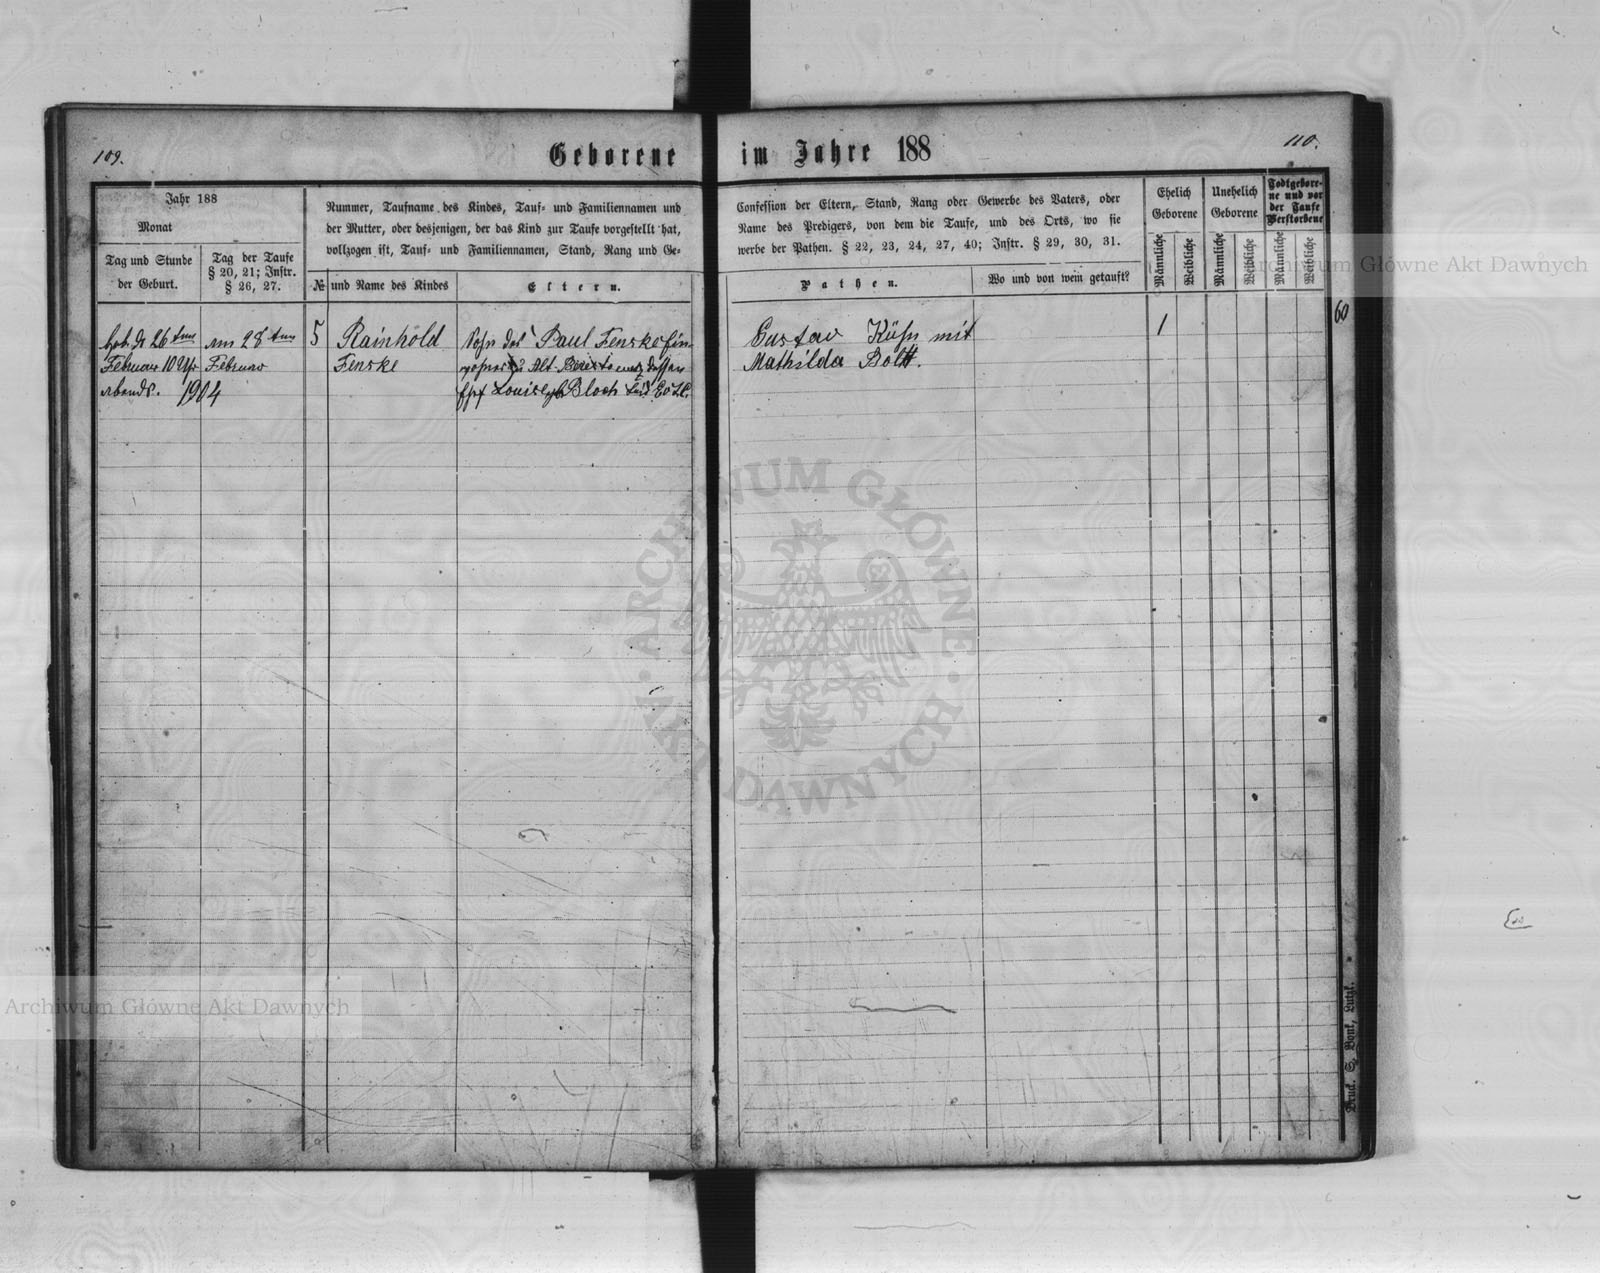 109.
Geborene
im Jahre 188
110.
Jahr 188
Monat
Tag und Stunde
der Geburt.
Tag der Taufe
§ 20, 21; Instr.
§ 26, 27.
Nummer, Taufname des Kindes, Tauf- und Familiennamen und
der Mutter, oder desjenigen, der das Kind zur Taufe vorgestellt hat,
vollzogen ist, Tauf- und Familiennamen, Stand, Rang und Ge-
№ und Name des Kindes
Eltern.
Confession der Eltern, Stand, Rang oder Gewerbe des Vaters, oder
Name des Predigers, von dem die Taufe, und des Orts, wo sie
werbe der Pathen. § 22, 23, 24, 27, 40; Instr. § 29, 30, 31.
Pathen.
Wo und von wem getauft?
Ehelich
Geborene
Unehelich
Geborene
Todtgebore-
ne und vor
der Taufe
Verstorbene
Männliche
Weibliche
Männliche
Weibliche
Männliche
Weibliche
60
Geb. d. 26 ten
Februar 10 Uhr
abends.
am 28 ten
Februar
1904
5
Rainhold
Fenske
Sohn des Paul Fenske Ein-
wohner zu Alt. dessen
Ehf Louise gb Bloch
Gustav Kühn mit
Mathilda Boltt.
1
Druck. S. Bonk, Lutzk.
ARCHIWUM GŁÓWNE · AKT DAWNYCH ·
Archiwum Główne Akt Dawnych
Archiwum Główne Akt Dawnych